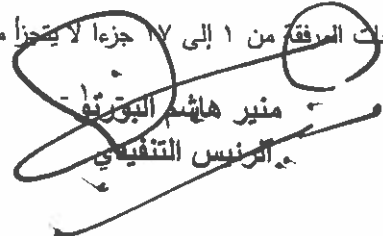 المرفقة من ١ إلى ١٧ جزءا لا يتجزأ
منير هاشم
الرئيس التنفيذي